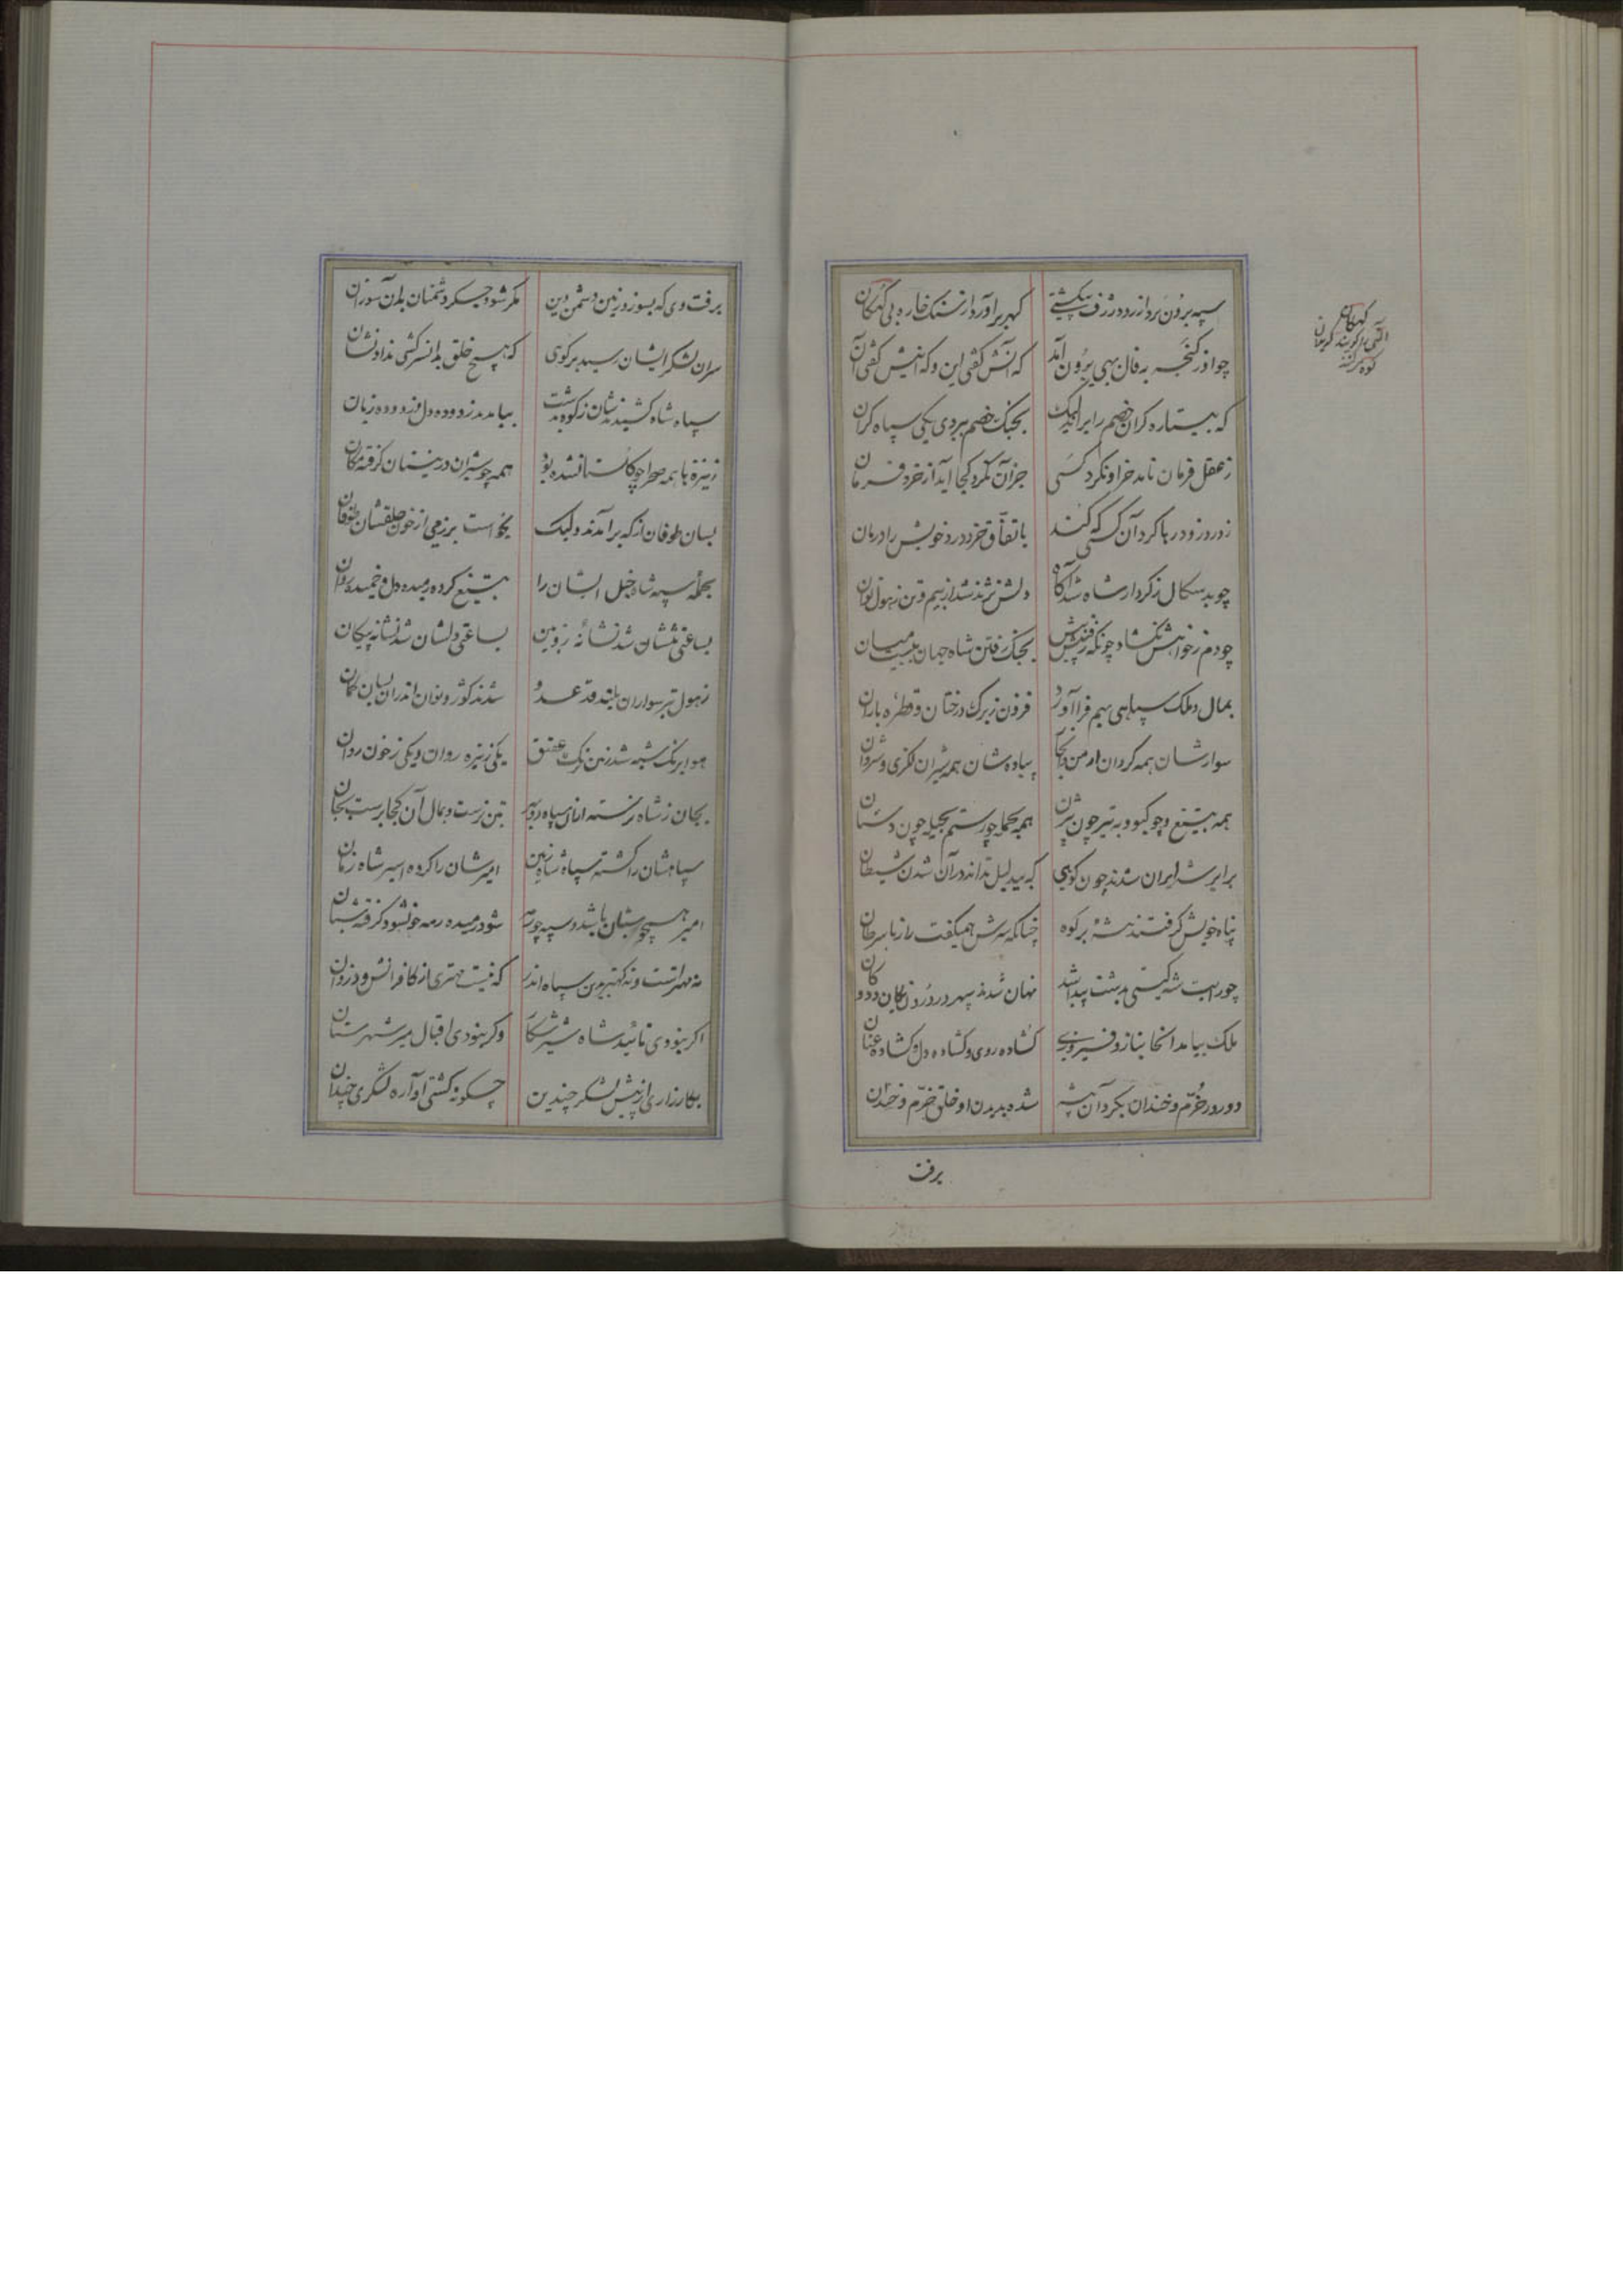 سپه برون برد از رود ژرف بی کشتی گهر برآورد از سنگ خاره بی گهکان
گهکان
آلتی را گویند که بدان
کوه کنند
چو از در گنجه به فال بهی برون آمد که آتش گفتی این و که اینش گفتی آن
که بیستاره کران خصم را برابر لیک بجنگ خصم بردی یکی سپاه کران
ز عقل فرمان نامد خرا و نکرد کسی جز آن نکرد کجا آید از خرد فرمان
زدرد زود رها کرد آن کسی که کند باتفاق خرد درد خویش را درمان
چو بدسکال ز کردار شاه شد آگاه دلش نژند شد از بیم و تن ز هول نوان
بجنگ رفتن شاه جهان ببست میان
بمال و ملک سپاهی بهم فراز آورد فزون ز برک درختان و قطره باران
سوارشان همه کردان ارمن و ابخاز پیاده‌شان همه شیران لکزی و شروان
همه بتیغ چو کیو و به تیر چون بیژن همه بحمله چو رستم بحیله چون دستان
برابر شه ایران شدند چون کوهی که بیدلیل نداند در آن شدن شیطان
پناه خویش گرفتند بیشه و بر کوه چنانکه سرش همیکفت راز با سرطان
چو رایت شه کیتی بدشت پیدا شد نهان شدند سپه در درون
ملک بیامد آنجا بناز و فیروزی کشاده روی و کشاده دل و کشاده عنان
دو روز خرم و خندان بکرد آن بیشه شده بدیدن او خلق خرم و خندان
برفت
برفت وی که بسوزد زمین دشمن دین مکر شود جکر دشمنان بدان سوزان
سران لشکر ایشان رسید بر کوهی که هیچ خلق بدانسر کشی نداد نشان
سپاه شاه کشیدندشان ز کوه بدشت بیامدند زدوده دل و زدوده زبان
ز نیزه باهمه صحرا چو کاستان شده بود همه چو شیران در نیستان کرفته مکان
بسان طوفان از که برآمدند ولیک بخواست بر زمی از خون حلقشان طوفان
بحمله سپه شاه خیل ایشان را بتیغ کرده رمیده دل و خمیده روان
بساعتی تنشان شد نشانه زوبین بساعتی دلشان شد نشانه پیکان
ز هول تیر سواران بلند قد عدو شدند کوژ و نوان اندران بسان کمان
هوا برنک شبه شد زمین برنک عقیق یکی ز نیزه روان و یکی ز خون روان
بجان ز شاه نرسته از آن سپاه دو بهر بتن نرست و بمال آن کجا برست بجان
سپاهشان را کشته سپاه شاه زمین امیرشان را کرده اسیر شاه زمان
امیر همچو شبان باشد و سپه چو رمه شود رمیده رمه چون شود کرفته شبان
نه مهتر است و نه کهتر بدین سپاه اندر که نیست مهتری از کافرانش در زندان
اکر نبودی تائید شاه شیر شکار وکر نبودی اقبال میر شهرستان
بکارزاری از پیش لشکر چندین چکونه کشتی آواره لشکری چندان